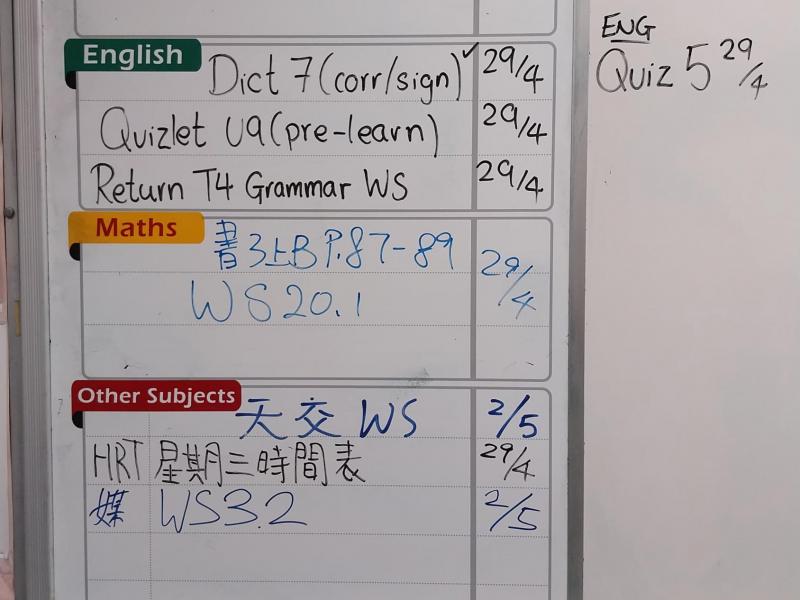 English
Dict 7 (corr/sign) ✓ 29/4
Quizlet U9 (pre-learn) 29/4
Return T4 Grammar WS 29/4
Maths
書3上B P.87-89 29/4
WS 20.1
Other Subjects
天交 WS 2/5
HRT 星期三時間表 29/4
媒 WS3.2 2/5
ENG
Quiz 5 29/4